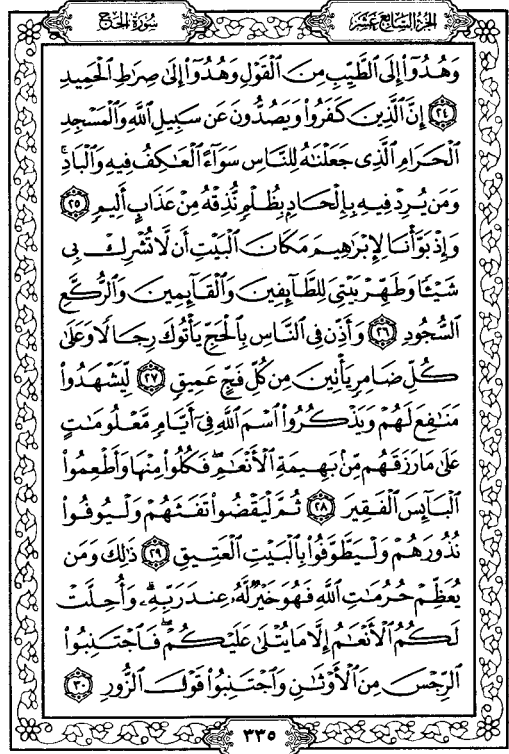 سُورَةُ الحَجّ
الجُزْءُ السَّابِعُ عَشَرَ
وَهُدُوٓا۟ إِلَى ٱلطَّيِّبِ مِنَ ٱلْقَوْلِ وَهُدُوٓا۟ إِلَىٰ صِرَٰطِ ٱلْحَمِيدِ
٢٤ إِنَّ ٱلَّذِينَ كَفَرُوا۟ وَيَصُدُّونَ عَن سَبِيلِ ٱللَّهِ وَٱلْمَسْجِدِ
ٱلْحَرَامِ ٱلَّذِى جَعَلْنَٰهُ لِلنَّاسِ سَوَآءً ٱلْعَٰكِفُ فِيهِ وَٱلْبَادِ ۚ
وَمَن يُرِدْ فِيهِ بِإِلْحَادٍۭ بِظُلْمٍ نُّذِقْهُ مِنْ عَذَابٍ أَلِيمٍ ٢٥
وَإِذْ بَوَّأْنَا لِإِبْرَٰهِيمَ مَكَانَ ٱلْبَيْتِ أَن لَّا تُشْرِكْ بِى
شَيْـًٔا وَطَهِّرْ بَيْتِىَ لِلطَّآئِفِينَ وَٱلْقَآئِمِينَ وَٱلرُّكَّعِ
ٱلسُّجُودِ ٢٦ وَأَذِّن فِى ٱلنَّاسِ بِٱلْحَجِّ يَأْتُوكَ رِجَالًا وَعَلَىٰ
كُلِّ ضَامِرٍ يَأْتِينَ مِن كُلِّ فَجٍّ عَمِيقٍ ٢٧ لِّيَشْهَدُوا۟
مَنَٰفِعَ لَهُمْ وَيَذْكُرُوا۟ ٱسْمَ ٱللَّهِ فِىٓ أَيَّامٍ مَّعْلُومَٰتٍ
عَلَىٰ مَا رَزَقَهُم مِّنۢ بَهِيمَةِ ٱلْأَنْعَٰمِ ۖ فَكُلُوا۟ مِنْهَا وَأَطْعِمُوا۟
ٱلْبَآئِسَ ٱلْفَقِيرَ ٢٨ ثُمَّ لْيَقْضُوا۟ تَفَثَهُمْ وَلْيُوفُوا۟
نُذُورَهُمْ وَلْيَطَّوَّفُوا۟ بِٱلْبَيْتِ ٱلْعَتِيقِ ٢٩ ذَٰلِكَ وَمَن
يُعَظِّمْ حُرُمَٰتِ ٱللَّهِ فَهُوَ خَيْرٌ لَّهُۥ عِندَ رَبِّهِۦ ۗ وَأُحِلَّتْ
لَكُمُ ٱلْأَنْعَٰمُ إِلَّا مَا يُتْلَىٰ عَلَيْكُمْ ۖ فَٱجْتَنِبُوا۟
ٱلرِّجْسَ مِنَ ٱلْأَوْثَٰنِ وَٱجْتَنِبُوا۟ قَوْلَ ٱلزُّورِ ٣٠
٣٣٥